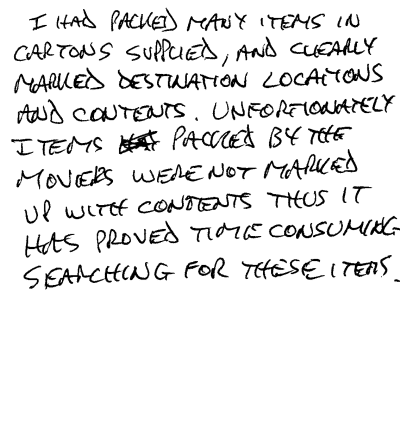 I HAD PACKED MANY ITEMS IN
CARTONS SUPPLIED, AND CLEARLY
MARKED DESTINATION LOCATIONS
AND CONTENTS. UNFORTIONATELY
ITEMS PACKED BY THE
MOVERS WERE NOT MARKED
UP WITH CONTENTS THUS IT
HAS PROVED TIME CONSUMING
SEARCHING FOR THESE ITEMS.